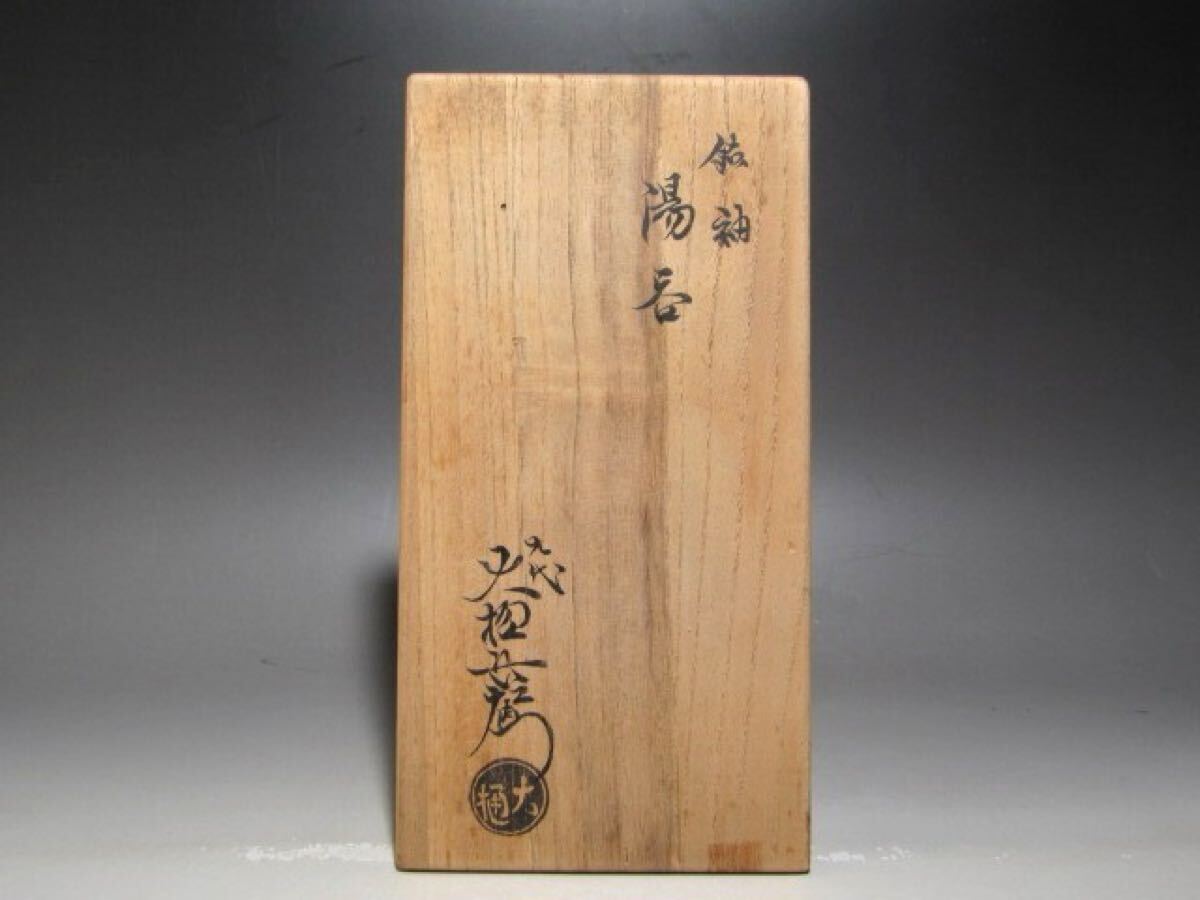 飴釉
湯呑
九代
大樋長左衛門
大樋